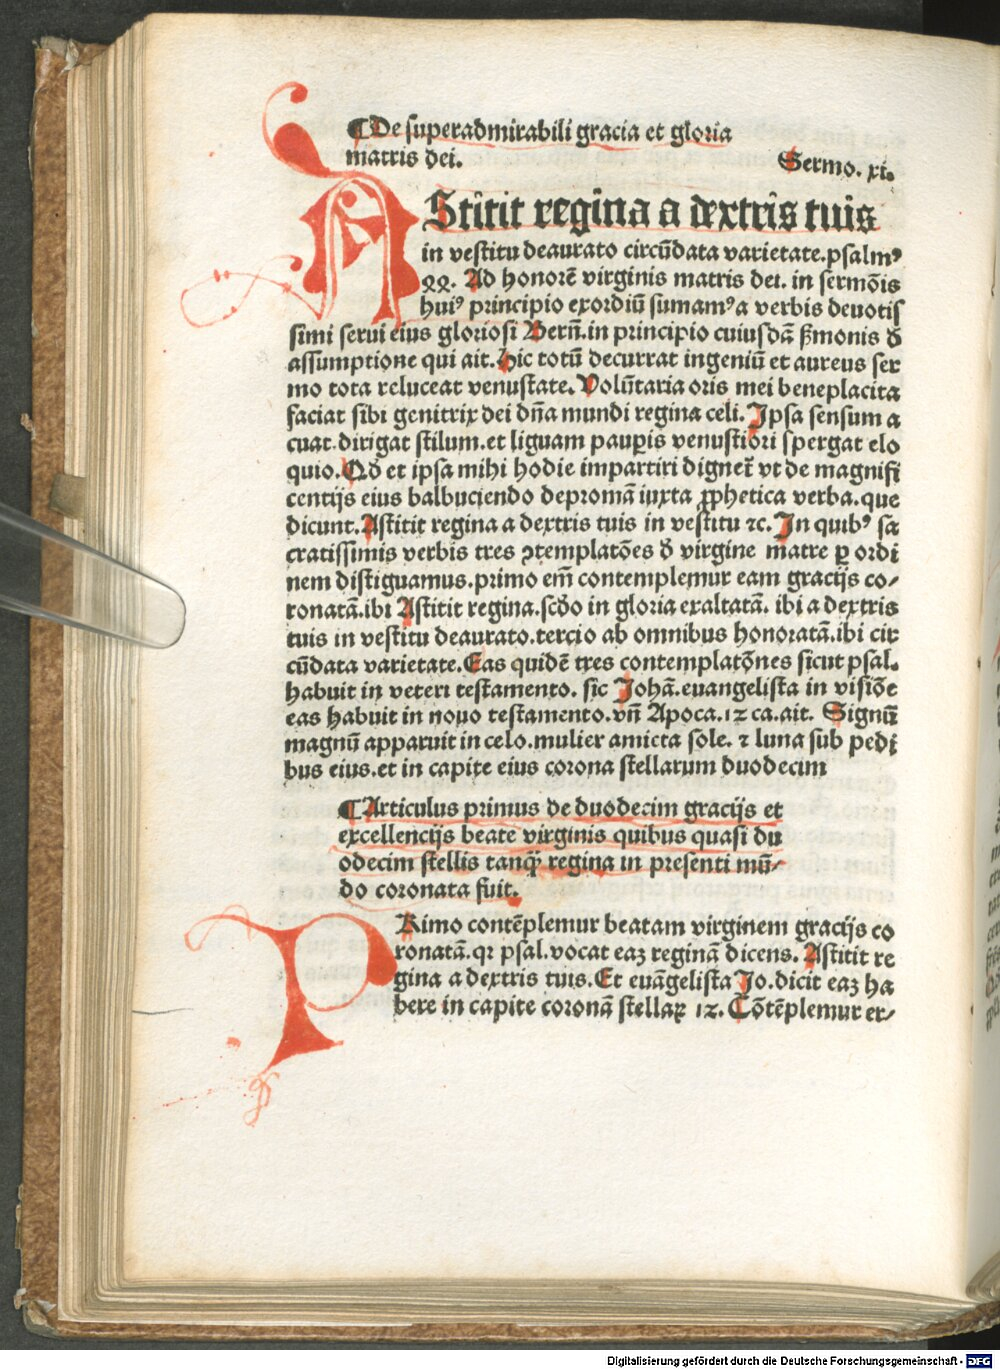 ¶De superadmirabili gracia et gloria
matris dei. Sermo. xi.
AStitit regina a dextris tuis
in vestitu deaurato circūdata varietate.psalmꝰ
Ad honorē virginis matris dei. in sermōis
huiꝰ principio exordiū sumamꝰ a verbis deuotis
simi serui eius gloriosi Bern̄.in principio cuiusdā ẜmonis đ
assumptione qui ait. Hic totū decurrat ingeniū et aureus ser
mo tota reluceat venustate. Volūtaria oris mei beneplacita
faciat sibi genitrix dei dn̄a mundi regina celi. Ipsa sensum a
cuat.dirigat stilum.et liguam paupis venustiori spergat elo
quio. Qđ et ipsa mihi hodie impartiri dignet᷑ vt de magnifi
centijs eius balbuciendo depromā iuxta ꝓphetica verba.que
dicunt.Astitit regina a dextris tuis in vestitu ⁊c. In quibꝰ sa
cratissimis verbis tres ꝯtemplatōes đ virgine matre ꝑ ordi
nem distiguamus.primo em̄ contemplemur eam gracijs co⸗
ronatā.ibi Astitit regina.scđo in gloria exaltatā. ibi a dextris
tuis in vestitu deaurato.tercio ab omnibus honoratā.ibi cir
cūdata varietate.Eas quidē tres contemplatōnes sicut psal.
habuit in veteri testamento. sic Johā.euangelista in visiōe
eas habuit in nouo testamento.vn̄ Apoca.12 ca.ait. Signū
magnū apparuit in celo.mulier amicta sole. ⁊ luna sub pedi
bus eius.et in capite eius corona stellarum duodecim
¶Articulus primus de duodecim gracijs et
excellencijs beate virginis quibus quasi du
odecim stellis tanq̄ regina in presenti mū⸗
do coronata fuit.
PRimo contēplemur beatam virginem gracijs co
ronatā.qꝛ psal.vocat eaꝫ reginā dicens. Astitit re
gina a dextris tuis.Et euāgelista Jo.dicit eaꝫ ha
bere in capite coronā stellaꝝ 12. Cōtēplemur er⸗
Digitalisierung gefördert durch die Deutsche Forschungsgemeinschaft - DFG